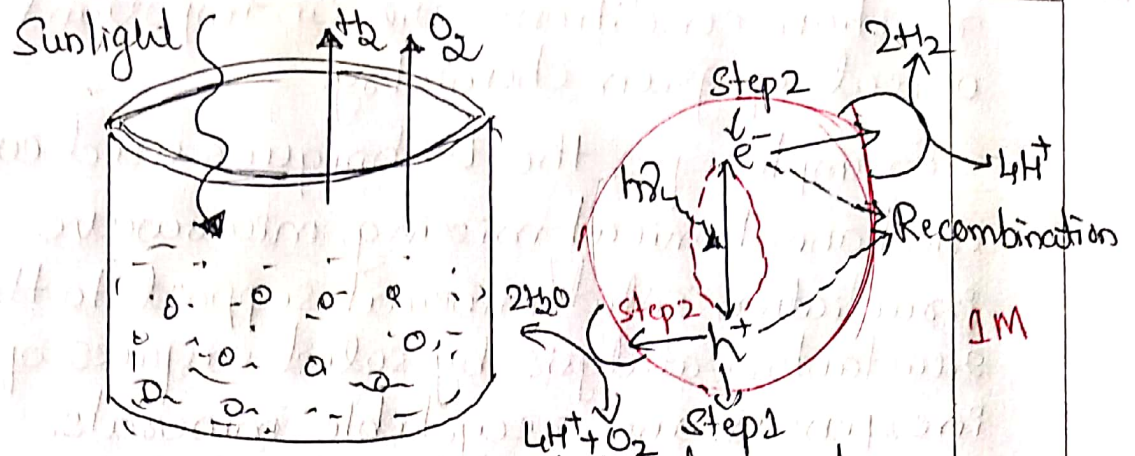 Sunlight
H₂
O₂
2H₂
Step2
e⁻
4H⁺
hν
Recombination
2H₂O
Step2
h⁺
1M
4H⁺+O₂
Step1